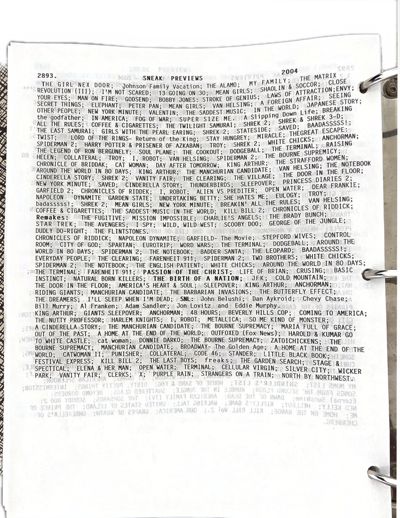 2893. SNEAK PREVIEWS 2004
THE GIRL NEX DOOR; Johnson Family Vacation; THE ALAMO, MY FAMILY; THE MATRIX
REVOLUTION (III); I'M NOT SCARED; 13 GOING ON 30; MEAN GIRLS; SHAOLIN & SOCCER; CLOSE
YOUR EYES; MAN ON FIRE; GODSEND; BOBBY JONES: STROKE OF GENIUS; LAWS OF ATTRACTION; ENVY;
SECRET THINGS; ELEPHANT; PETER PAN; MEAN GIRLS; VAN HELSING; A FOREIGN AFFAIR; SEEING
OTHER PEOPLE; NEW YORK MINUTE; VALENTIN; THE SADDEST MUSIC IN THE WORLD; JAPANESE STORY;
the godfather; IN AMERICA; FOG OF WAR; SUPER SIZE ME; A Slipping Down Life; BREAKING
ALL THE RULES; COFFEE & CIGARETTES; THE TWILIGHT SAMURAI; SHREK 2; SHREK & SHREK 3-D;
THE LAST SAMURAI; GIRLS WITH THE PEARL EARING; SHREK 2; STATESIDE; SAVED; BAADASSSSS!;
TWIST; LORD OF THE RINGS- Return of the King; STAY HUNGREY; MIRACLE; THEGREAT ESCAPE;
SPIDERMAN 2; HARRY POTTER & PRISENER OF AZKABAN; TROY; SHREK 2; WHITE CHICKS; ANCHORMAN;
THE LEGEND OF RON BERGUNDLY; SOUL PLANE; THE COOKOUT; DODGEBALL; THE TERMINAL; RAISING
HELEN; COLLATERAL; TROY; I, ROBOT; VAN HELSING; SPIDERMAN 2; THE BOURNE SUPREMICY;
CHRONICLE OF BRIDDAK; CAT WOMAN; DAY AFTER TOMORROW; KING ARTHUR; THE STRAFFORD WOMEN;
AROUND THE WORLD IN 80 DAYS; KING ARTHUR; THE MANCHURIAN CANDIDATE; VAN HELSING; THE NOTEBOOK
CINDERELLA STORY; SHREK 2; VANITY FAIR; THE CLEARING; THE VILLAGE; THE DOOR IN THE FLOOR;
NEW YORK MINUTE; SAVED; CINDERELLA STORY; THUNDERBIRDS; SLEEPOVER; PRINCESS DIARIES 2;
GARFIELD 2; CHRONICLES OF RIDDEK; I, ROBOT; ALIEN VS PREDITER; OPEN WATER; DEAR FRANKIE;
NAPOLEON DYNAMITE GARDEN STATE; UNDERTAKING BETTY; SHE HATES ME; EULOGY; TROY;
badasssss!; SHREK 2; MEAN GIRLS; NEW YORK MINUTE; BREAKIN' ALL THE RULES; VAN HELSING;
COFFEE & CIGARETTES; THE SADDEST MUSIC IN THE WORLD; KILL BILL 2; CHRONICLES OF RIDDICK;
Remakes: THE FUGITIVE; MISSION IMPOSSIBLE; CHARLIE'S ANGELS; THE BRADY BUNCH;
STAR TREK; THE AVENGERS; I SPY; WILD, WILD WEST; SCOOBY DOO; GEORGE OF THE JUNGLE;
DUDLY DO-RIGHT; THE FLINTSTONES.
CHRONICLES OF RIDDICK; NAPOLEON DYNAMITE; GARFIELD- The Movie; STEPFORD WIVES; CONTROL
ROOM; CITY OF GOD; SPARTAN; EUROTRIP; WORD WARS; THE TERMINAL; DODGEBALL; AROUND THE
WORLD IN 80 DAYS; SPIDERMAN 2; THE NOTEBOOK; BADDER SANTA; THE LEOPARD; BAADASSSSS!;
EVERYDAY PEOPLE; THE CLEARING; FARENHEIT 911; SPIDERMAN 2; TWO BROTHERS; WHITE CHICKS;
SPIDERMAN 2; THE NOTEBOOK; THE ENGLISH PATIENT; WHITE CHICKS; AROUND THE WORLD IN 80 DAYS;
THE TERMINAL; FARENHEIT 911; PASSION OF THE CHRIST; LIFE OF BRIAN; CRUSING; BASIC
INSTINCT; NATURAL BORN KILLERS; THE BIRTH OF A NATION; JFK; COLD MOUNTAIN;
THE DOOR IN THE FLOOR; AMERICA'S HEART & SOUL; SLEEPOVER; KING ARTHUR; ANCHORMAN;
RIDING GIANTS; MANCHURIAN CANDIDATE; THE BARBARIAN INVASIONS; THE BUTTERFLY EFFECT;
THE DREAMERS; I'LL SLEEP WHEN I'M DEAD; SNL: John Belushi; Dan Aykroid; Chevy Chase;
Bill Murry; Al Franken; Adam Sandler; Jon Lovitz; and Eddie Murphy.
KING ARTHUR; GIANTS SLEEPOVER; ANCHORMAN; 48 HOURS; BEVERLY HILLS COP; COMING TO AMERICA;
THE NUTTY PROFESSOR; HARLEM KNIGHTS; I, ROBOT; METALLICA; SO ME KIND OF MONSTER;
A CINDERELLA STORY; THE MANCHURIAN CANDIDATE; THE BOURNE SUPREMACY; MARIA FULL OF GRACE;
OUT OF THE PAST; A HOME AT THE END OF THE WORLD; OUTFOXED (Fox News); HAROLD & KUMAR GO
TO WHITE CASTLE; cat woman; DONNIE DARKO; THE BOURNE SUPREMACY; ZATOICHICKENS; THE
BOURNE SUPREMACY; MANCHURIAN CANDIDATE; BROADWAY- The Golden Age; A HOME AT THE END OF THE
WORLD; CATWOMAN II; PUNISHER; COLLATERAL; CODE 46; STANDER; LITTLE BLACK BOOK;
FESTIVAL EXPRESS; KILL BILL 2 THE LAST BOYS; freeks; THE GARDEN SEARCH; STAGE &
SPECTICAL; ELENA & HER MAN; OPEN WATER; TERMINAL; CELLULAR VIRGIN; SILVER CITY; WICKER
PARK; VANITY FAIR; CLERKS; X; PURPLE RAIN; STRANGERS ON A TRAIN; NORTH BY NORTHWEST.